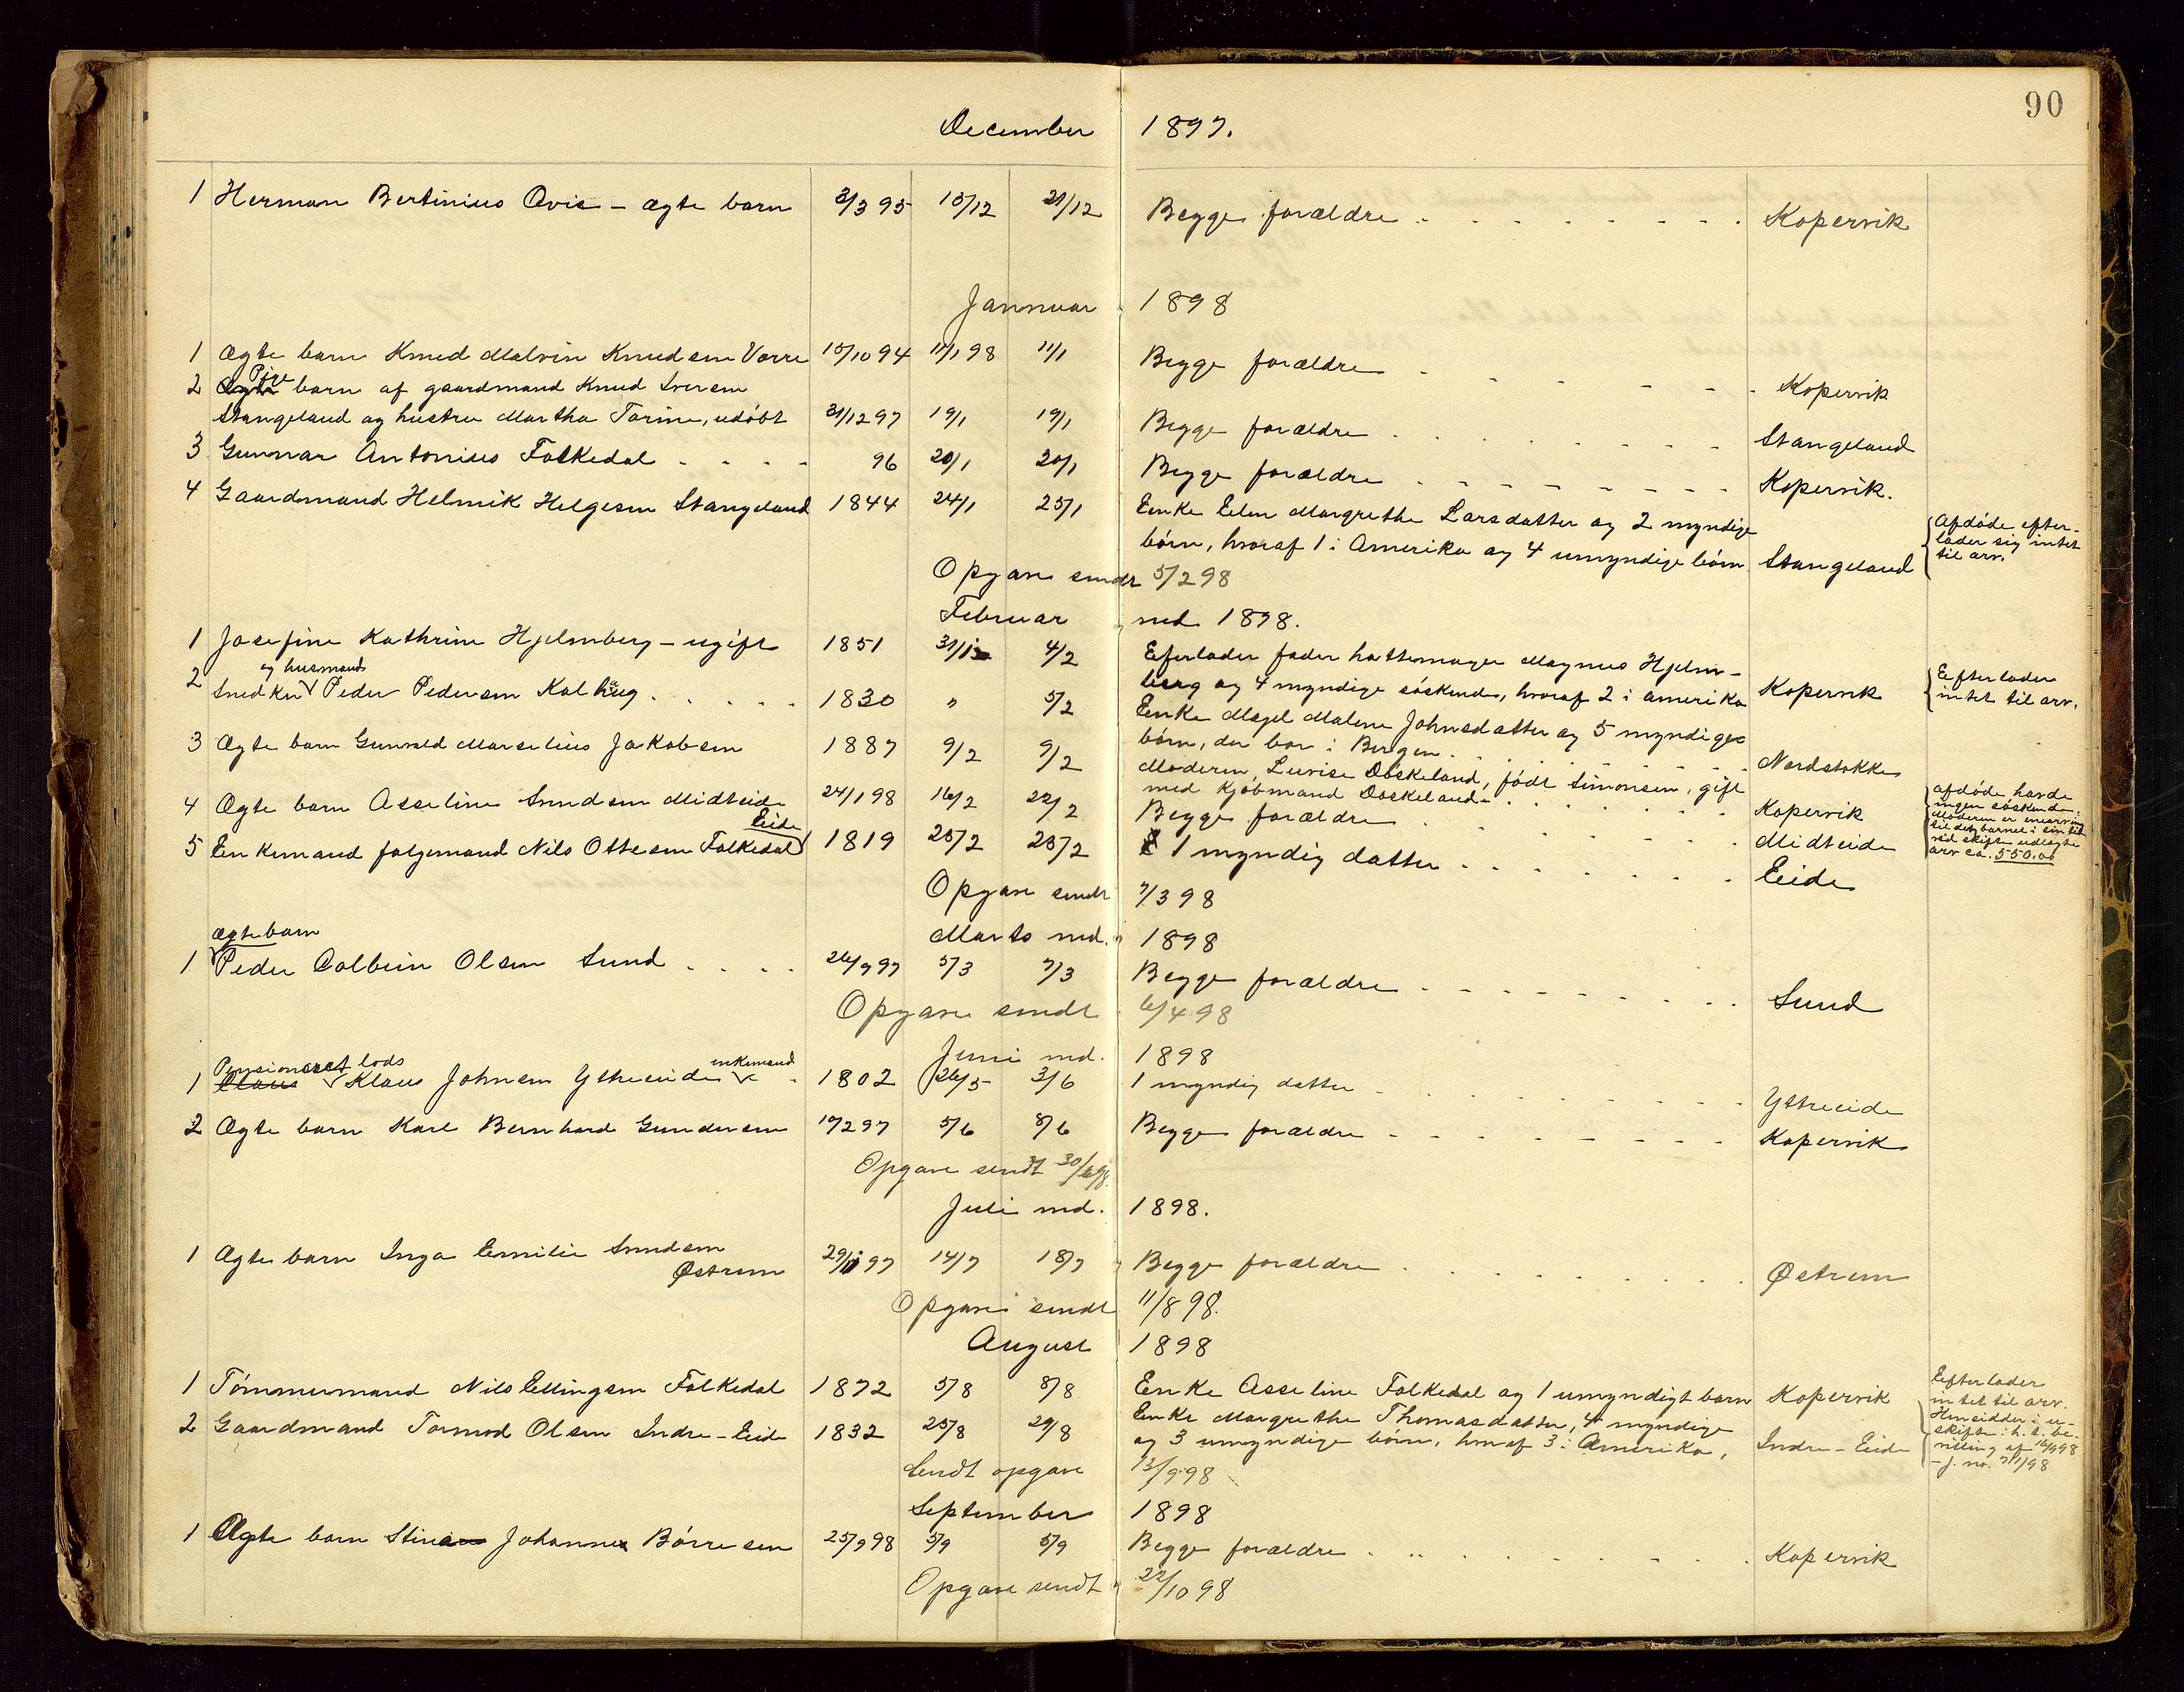 90
December 1897.
1 Herman Bertinius Qvie - ægte barn 3/3 95 15/12 21/12 Begge forældre - - - - - Kopervik
Jannuar 1898
1 Ægte barn Knud Malvin Knudsen Vorre 15/10 94 11/1 98 11/1 Begge forældre - - - - - Kopervik
Pige
2 Ægte barn af gaardmand Knud Iversen
Stangeland og hustru Martha Torine, udöbt 31/12 97 19/1 19/1 Begge forældre - - - - - Stangeland
3 Gunnar Antonius Folkedal - - - - 96 20/1 20/1 Begge forældre - - - - - Kopervik.
4 Gaardmand Helmik Helgesen Stangeland 1844 24/1 25/1 Enke Elen Margrethe Larsdatter og 2 myndige
börn, hvoraf 1 i Amerika og 4 umyndige börn Stangeland
Afdöde efter-
lader sig intet
til arv.
Opgave sendt 5/2 98
Februar md. 1898.
1 Josefine Kathrine Hjelmberg - ugift 1851 31/1 4/2 Eferlader fader hattemager Magnus Hjelm-
berg og 4 myndige söskende, hvoraf 2 i amerika Kopervik
Efterlader
intet til arv.
og husmand
2 Snedker Peder Pedersen Kolhaug - - - - 1830 " 5/2 Enke Magel Malene Johnsdatter og 5 myndige
börn, der bor i Bergen - - - - Nordstokke
3 Ægte barn Gunvald Marselius Jakobsen 1887 9/2 9/2 Moderen, Lovise Döskeland, födt Simonsen, gift
med Kjöbmand Döskeland - - - - Kopervik
afdöde havde
ingen söskende.
Moderen er enearving
til det barnet i sin tid
ved skifte udlagte
arv ca. 550,00
4 Ægte barn Asseline Svendsen Midteide 24/1 98 16/2 22/2 Begge forældre - - - - Midteide
Eide
5 Enkemand folgemand Nils Ottesen Folkedal 1819 25/2 25/2 1 myndig datter - - - - Eide
Opgave sendt 7/3 98
Marts md. 1898
ægte barn
1 Peder Colbein Olsen Sund - - - - 26/7 97 5/3 7/3 Begge forældre - - - - - Sund
Opgave sendt 6/4 98
Juni md. 1898
Pensioneret lods enkemand
1 Claus Klaus Johnsen Ytreeide - 1802 26/5 3/6 1 myndig datter - - - - - Ytreeide
2 Ægte barn Karl Bernhard Gundersen 17/2 97 5/6 8/6 Begge forældre - - - - - Kopervik
Opgave sendt 30/6 98.
Juli md. 1898.
1 Ægte barn Inga Emilie Svendsen
Østrem 29/11 97 14/7 18/7 Begge forældre - - - - - Østrem
Opgave sendt 11/8 98.
August 1898
1 Tömmermand Nils Ellingsen Folkedal 1872 5/8 8/8 Enke Asseline Folkedal og 1 umyndigt barn Kopervik
Efterlader
intet til arv.
2 Gaardmand Tormod Olsen Indre-Eide 1832 25/8 29/8 Enke Margrethe Thomasdatter, 4 myndige
og 3 umyndige börn, hvoraf 3 i Amerika, Indre-Eide
Hensidder i u-
skifte i h. t. be-
villing af 16/9 98
- j. no. 711/98
Sendt opgave 13/9 98
September 1898
1 Ægte barn Stina Johanne Börresen 25/7 98 5/9 5/9 Begge forældre - - - - - Kopervik
Opgave sendt 22/10 98